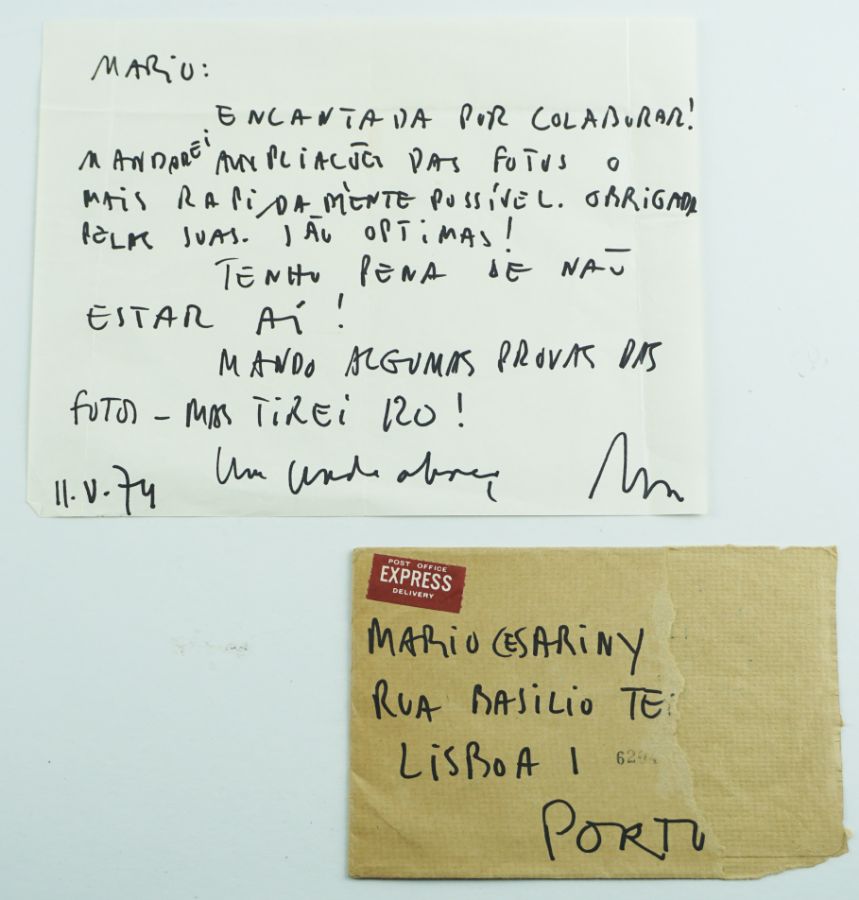 MARIO:
ENCANTADA POR COLABORAR!
MANDAREI AMPLIAÇÕES DAS FOTOS O
MAIS RAPIDAMENTE POSSÍVEL. OBRIGADA
PELAS SUAS. SÃO OPTIMAS!
TENHO PENA DE NAO
ESTAR AÍ!
MANDO ALGUMAS PROVAS DAS
FOTOS – MAS TIREI 120!
Um grande abraço
11.V.74
POST OFFICE
EXPRESS
DELIVERY
MARIO CESARINY
RUA BASILIO
LISBOA 1
PORTU